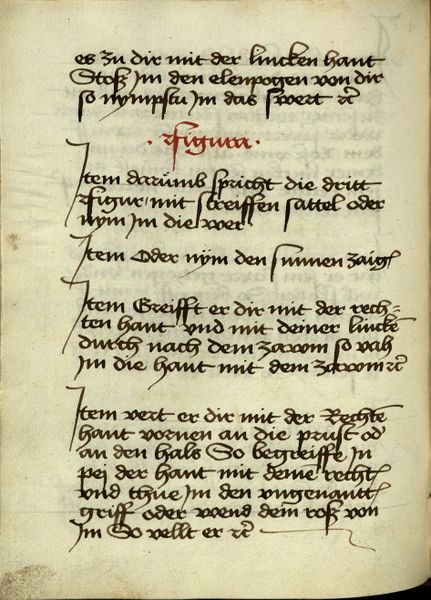 es zu dir mit der lincken hant
Stoß Im den elenpogen von dir
so nympstu Im das swert ꝛc
· Figura ·
Item darümb spricht die dritt
Figur mit streiffen sattel oder
nym Im die wer
Item Oder nÿm den sinnen zaigl
Item Greifft er dir mit der rech-
ten hant vnd mit deiner lincke
durch nach dem zawm so vah
Im die hant mit dem zawm ꝛc
Item vert er dir mit der Rechte
hant vornen an die prust od
an den hals So begreiffe In
pei der hant mit deine recht
vnd thue Im den vngenantt
griff oder wend dein roß von
Im So vellt er ꝛc